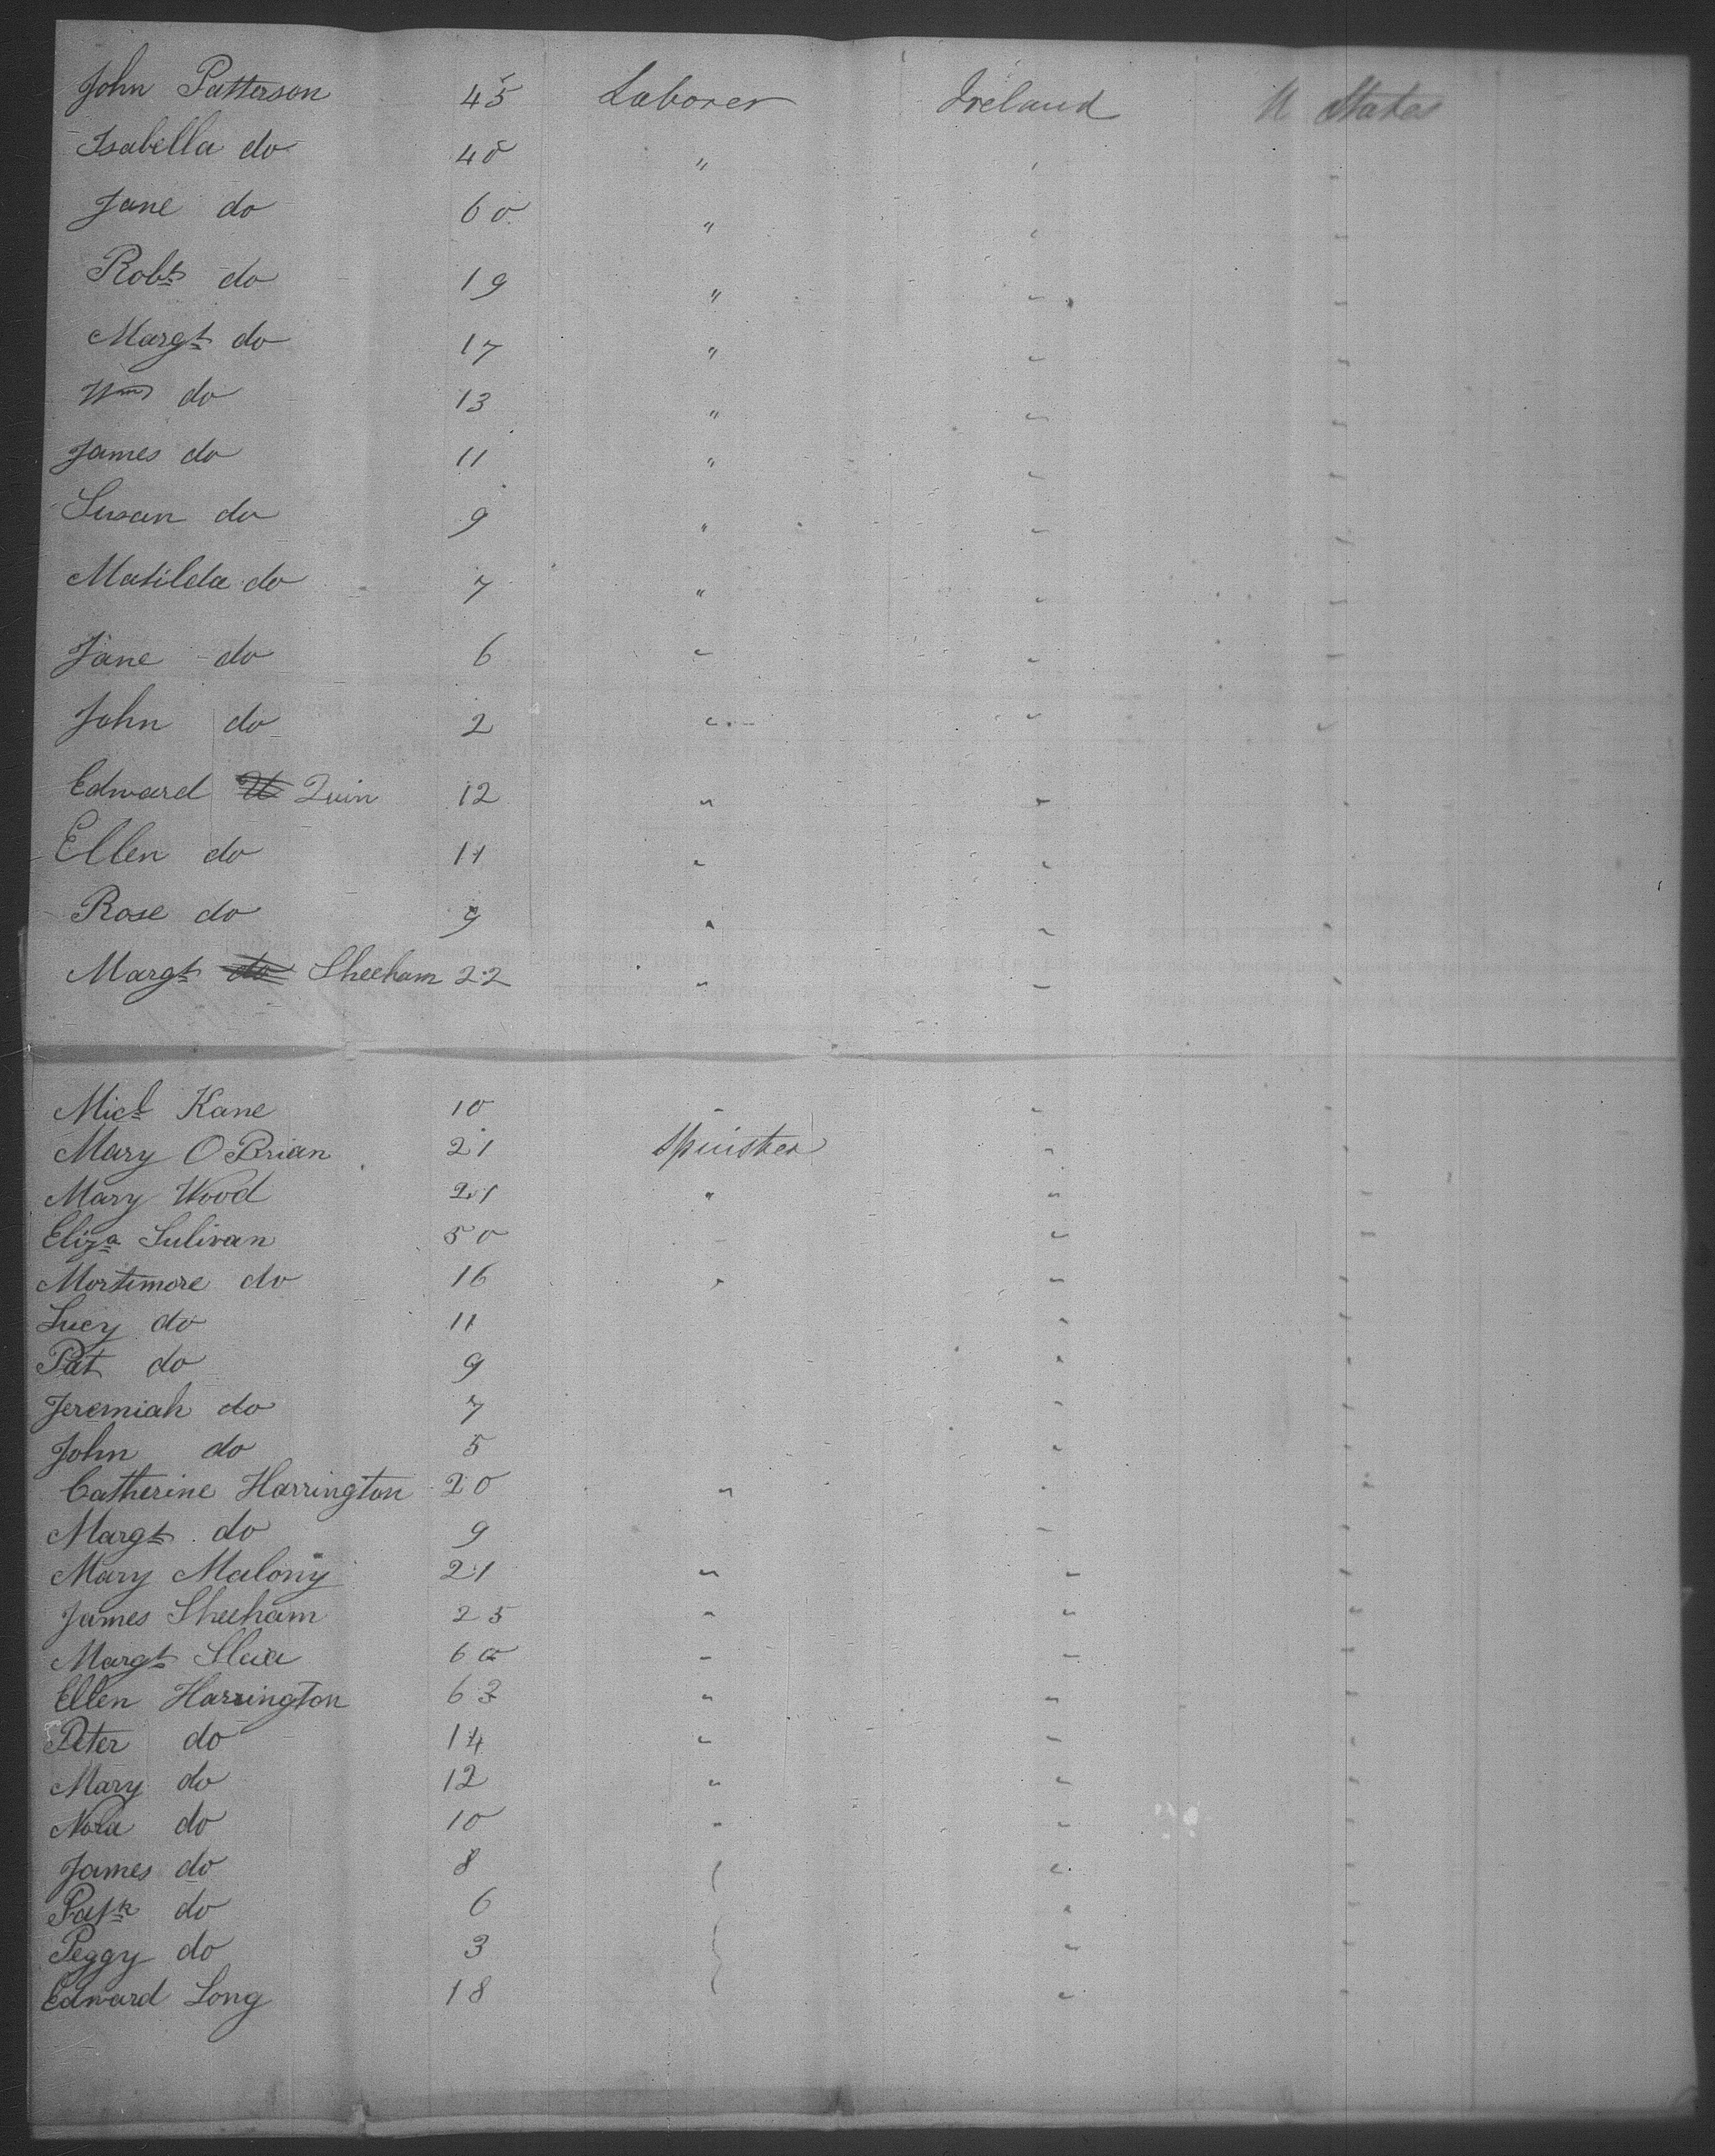 John Patterson 45 Laborer Ireland U States
Isabella do 40 " " "
Jane do 60 " " "
Robt do 19 " " "
Margt do 17 " " "
Wm do 13 " " "
James do 11 " " "
Susan do 9 " " "
Matilda do 7 " " "
Jane do 6 " " "
John do 2 " " "
Edward Quin 12 " " "
Ellen do 11 " " "
Rose do 9 " " "
Margt do Sheeham 22 " " "
Micl Kane 10 " " "
Mary O Brian 21 Spinster " "
Mary Wood 21 " " "
Eliza Sulivan 50 " "
Mortimore do 16 " " "
Lucy do 11 " "
Pat do 9 " "
Jeremiah do 7 " "
John do 5 " "
Catherine Harrington 20 " " "
Margt do 9 " "
Mary Malony 21 " " "
James Sheeham 25 " " "
Margt 60 " " "
Ellen Harrington 63 " " "
Peter do 14 " " "
Mary do 12 " " "
Nora do 10 " " "
James do 8 " "
Patk do 6 " "
Peggy do 3 " "
Edward Long 18 " "